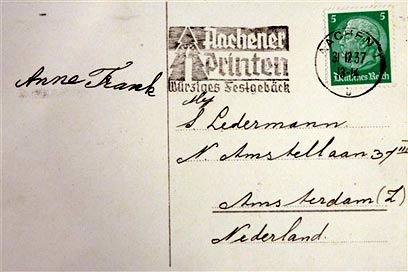 Anne Frank
Aachener
Printen
Würziges Festgebäck
5 5
AACHEN
Deutsches Reich
S Ledermann.
N. Amstellaan 37 III
Amsterdam (Z)
Nederland.